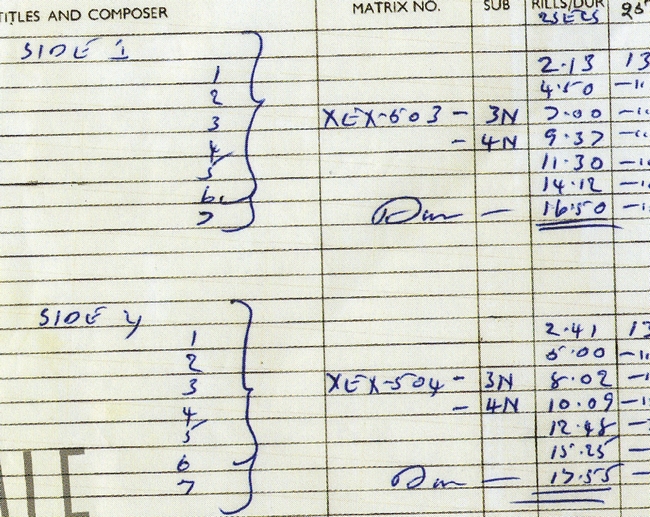 TITLES AND COMPOSER MATRIX NO. SUB RILLS/DUR
2SECS
SIDE 1
1 2.13 13
2 4.50
3 XEX-503 - 3N 7.00
4 - 4N 9.37
5 11.30
6. 14.12
7 — 16.50
SIDE 2
1 2.41 13
2 5.00
3 XEX-504 - 3N 8.02
4 - 4N 10.09
5 12.48
6 15.25
7 — 17.55
ALE